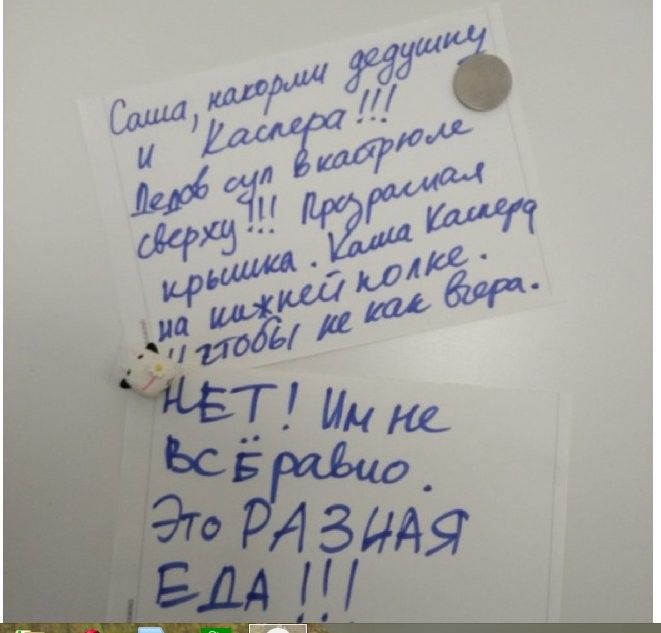 Саша, накорми дедушку
и Каспера!!!
Дедов суп в кастрюле
сверху!!! Прозрачная
крышка. Каша Каспера
на нижней полке.
И чтобы не как вчера.
НЕТ! Им не
ВСЁ равно.
Это РАЗНАЯ
ЕДА!!!